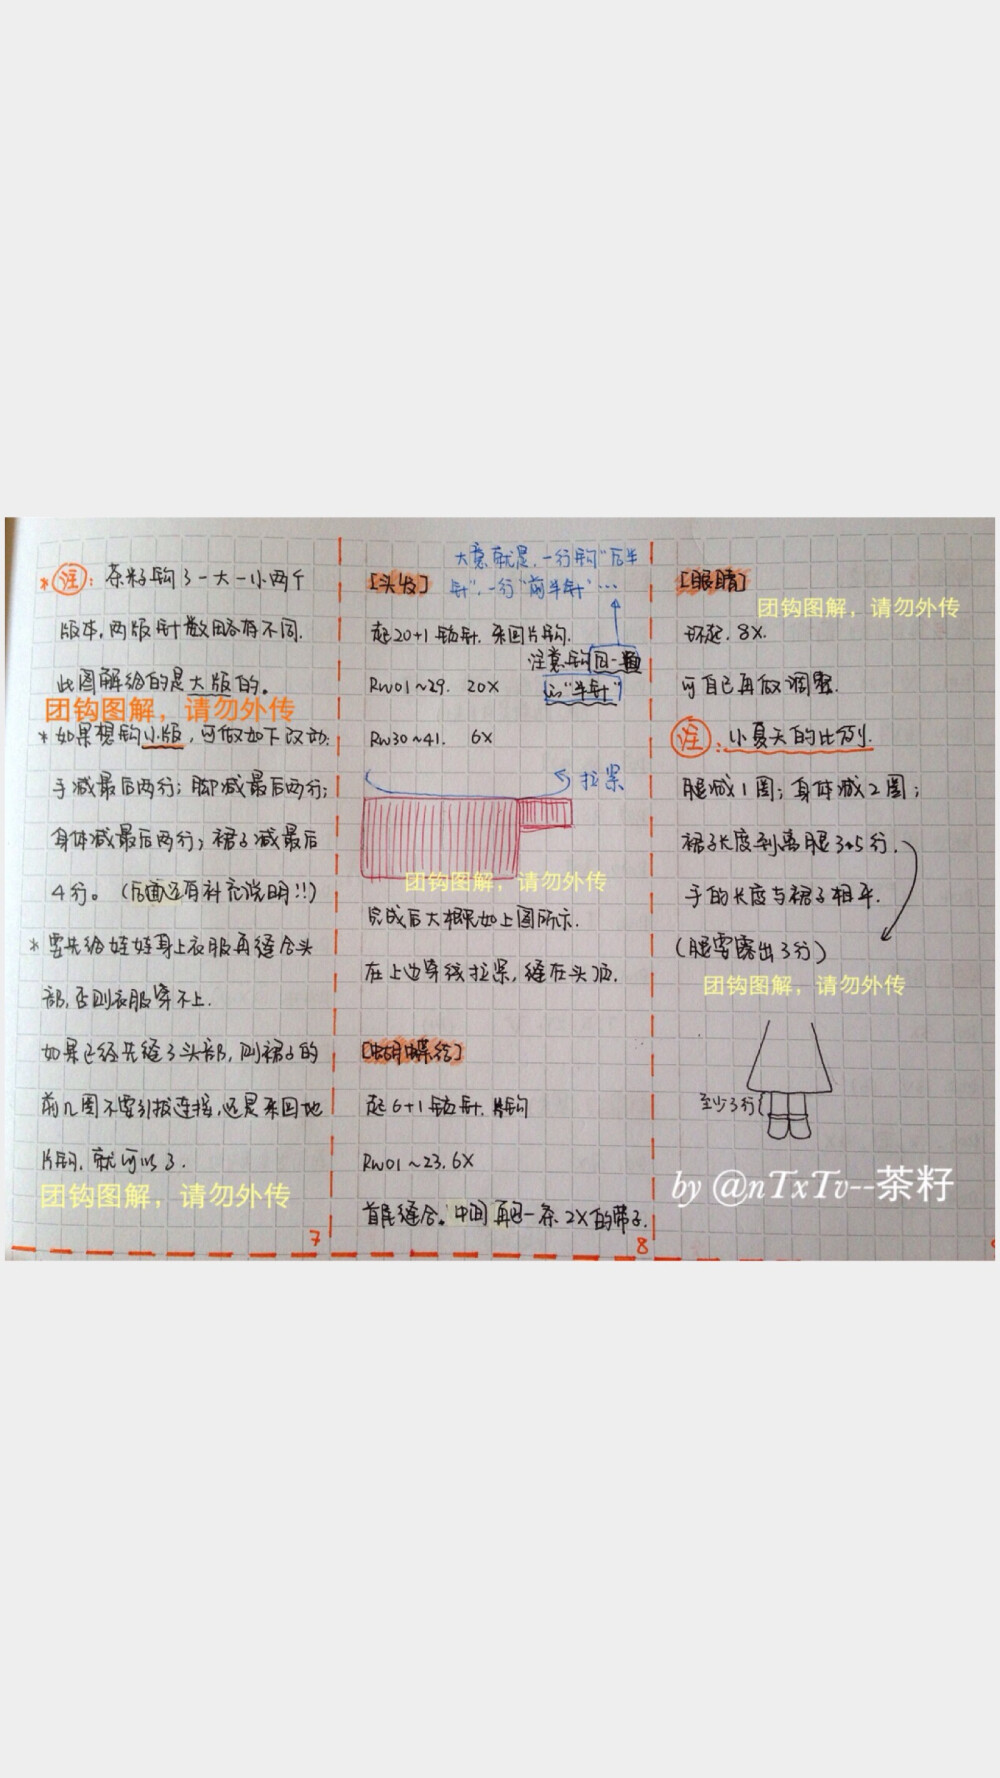 *注：茶籽钩了一大一小两个
版本，两版针数略有不同.
此图解给的是大版的。
团钩图解，请勿外传
*如果想钩小版，可做如下改动：
手减最后两行；脚减最后两行；
身体减最后两行；裙子减最后
4行。（后面还有补充说明!!）
*要先给娃娃身上衣服再缝合头
部，否则衣服穿不上.
如果已经先缝了头部，则裙子的
前几圈不要引拔连接，还是来回地
片钩，就可以了.
团钩图解，请勿外传
7
大意就是，一行钩“后半
针”，一行“前半针”…
[头发]
起20+1锁针.来回片钩.
注意钩
的“半针”
RW01~29. 20X
RW30~41. 6X
拉紧
团钩图解，请勿外传
完成后大概如上图所示.
在上边穿线拉紧，缝在头顶.
[蝴蝶结]
起6+1锁针.片钩
RW01~23.6X
首尾缝合。中间再包一条2X的带子.
8
[眼睛]
团钩图解，请勿外传
环起.8X.
可自己再做调整.
注：小夏天的比例.
腿减1圈；身体减2圈；
裙子长度到离腿3~5行.
手的长度与裙子相平.
（腿要露出3行）
团钩图解，请勿外传
至少3行
by @nTxTv--茶籽